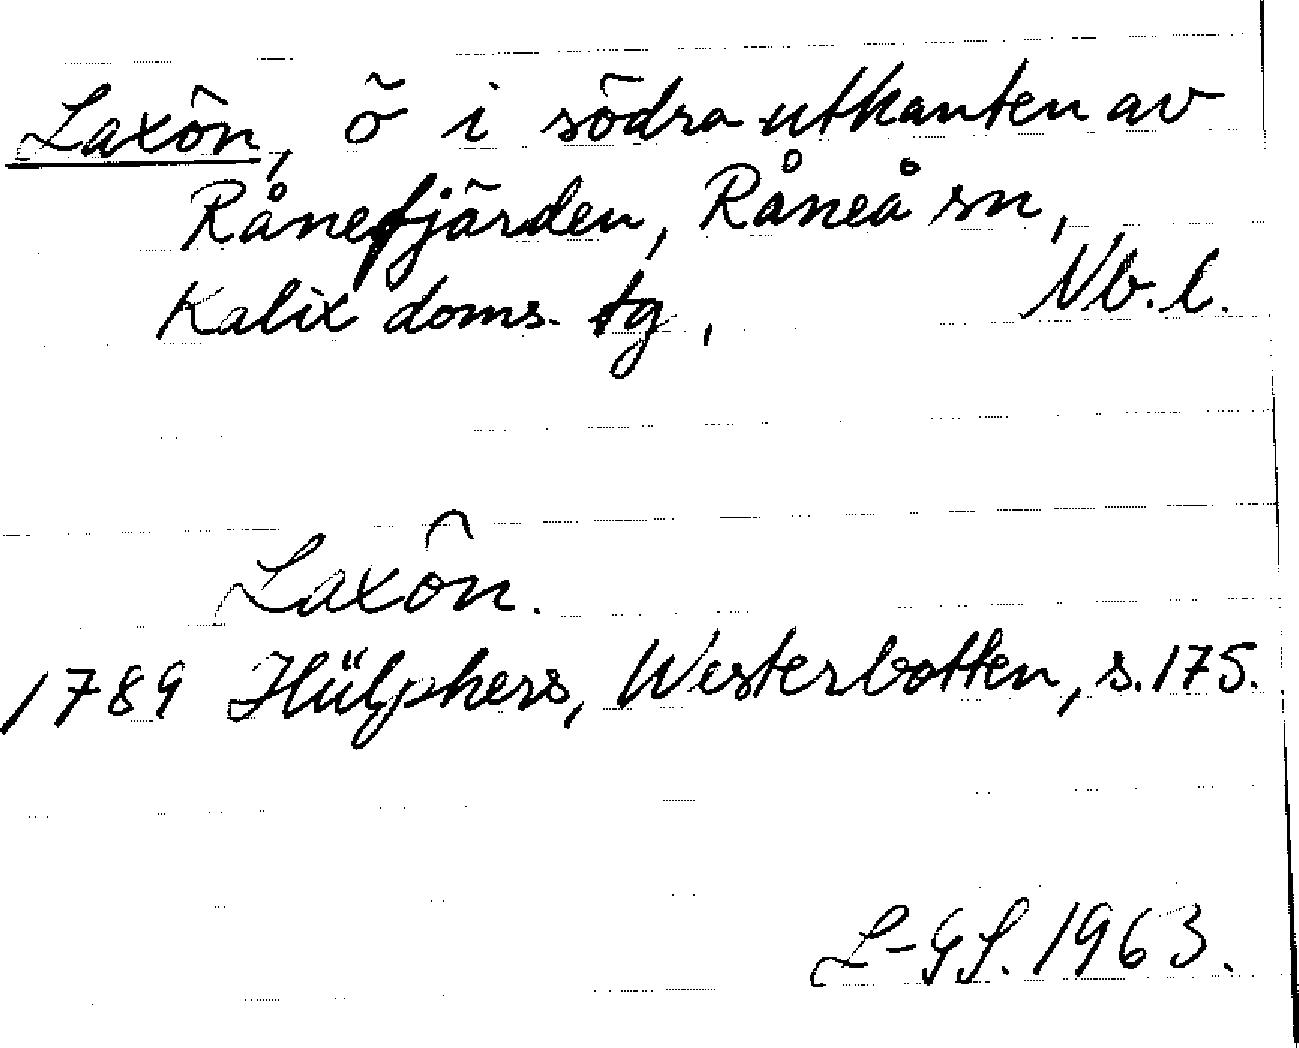 Laxön, ö i södra utkanten av
Rånefjärden, Råneå sn,
Kalix doms. tg, Nb.l.
Laxön.
1789 Hülphers, Westerbotten, s. 175.
L-GS. 1963.